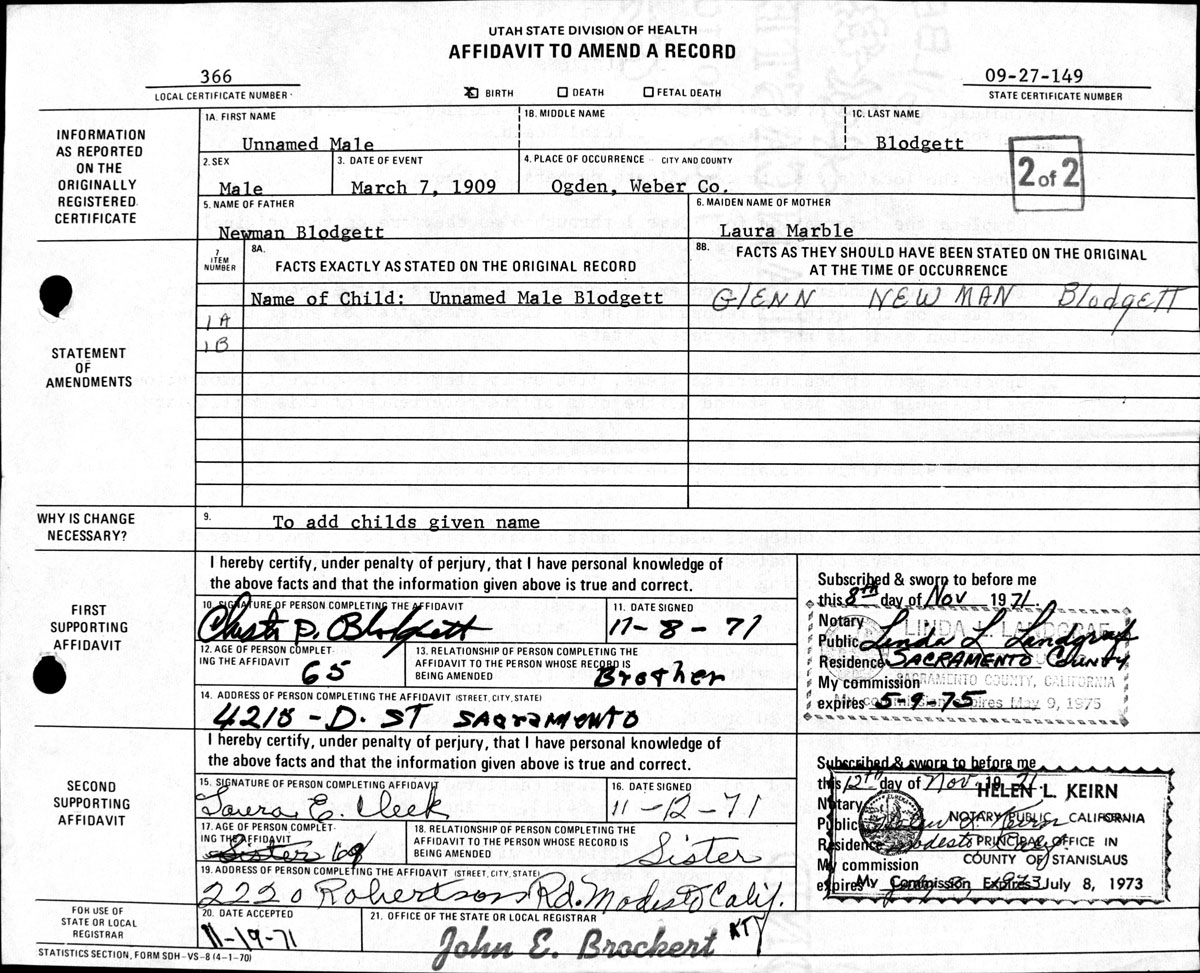 UTAH STATE DIVISION OF HEALTH
AFFIDAVIT TO AMEND A RECORD
366
LOCAL CERTIFICATE NUMBER
BIRTH DEATH FETAL DEATH
09-27-149
STATE CERTIFICATE NUMBER
INFORMATION
AS REPORTED
ON THE
ORIGINALLY
REGISTERED
CERTIFICATE
1A. FIRST NAME
Unnamed Male
1B. MIDDLE NAME
1C. LAST NAME
Blodgett
2. SEX
Male
3. DATE OF EVENT
March 7, 1909
4. PLACE OF OCCURRENCE - CITY AND COUNTY
Ogden, Weber Co.
2 of 2
5. NAME OF FATHER
Newman Blodgett
6. MAIDEN NAME OF MOTHER
Laura Marble
STATEMENT
OF
AMENDMENTS
7
ITEM
NUMBER
8A.
FACTS EXACTLY AS STATED ON THE ORIGINAL RECORD
8B.
FACTS AS THEY SHOULD HAVE BEEN STATED ON THE ORIGINAL
AT THE TIME OF OCCURRENCE
Name of Child: Unnamed Male Blodgett
GLENN NEWMAN Blodgett
1A
1B
WHY IS CHANGE
NECESSARY?
9.
To add childs given name
FIRST
SUPPORTING
AFFIDAVIT
I hereby certify, under penalty of perjury, that I have personal knowledge of
the above facts and that the information given above is true and correct.
10. SIGNATURE OF PERSON COMPLETING THE AFFIDAVIT
P. Blodgett
11. DATE SIGNED
11-8-71
12. AGE OF PERSON COMPLET-
ING THE AFFIDAVIT
65
13. RELATIONSHIP OF PERSON COMPLETING THE
AFFIDAVIT TO THE PERSON WHOSE RECORD IS
BEING AMENDED
Brother
14. ADDRESS OF PERSON COMPLETING THE AFFIDAVIT (STREET, CITY, STATE)
4215-D. ST SACRAMENTO
Subscribed & sworn to before me
this 8th day of Nov 1971
Notary
Public Linda L. Landgraf
LINDA L. LANDGRAF
Residence SACRAMENTO County
SACRAMENTO COUNTY, CALIFORNIA
My commission
expires 5-9-75
My commission expires May 9, 1975
SECOND
SUPPORTING
AFFIDAVIT
I hereby certify, under penalty of perjury, that I have personal knowledge of
the above facts and that the information given above is true and correct.
15. SIGNATURE OF PERSON COMPLETING AFFIDAVIT
Laura E. Cleek
16. DATE SIGNED
11-12-71
17. AGE OF PERSON COMPLET-
ING THE AFFIDAVIT
Sister 69
18. RELATIONSHIP OF PERSON COMPLETING THE
AFFIDAVIT TO THE PERSON WHOSE RECORD IS
BEING AMENDED
Sister
19. ADDRESS OF PERSON COMPLETING THE AFFIDAVIT (STREET, CITY, STATE)
2220 Robertson Rd. Modesto Calif.
Subscribed & sworn to before me
this 12th day of Nov 1971
Notary
Public
Residence Modesto
My commission
expires
HELEN L. KEIRN
NOTARY PUBLIC CALIFORNIA
PRINCIPAL OFFICE IN
COUNTY OF STANISLAUS
My Commission Expires July 8, 1973
FOR USE OF
STATE OR LOCAL
REGISTRAR
20. DATE ACCEPTED
11-19-71
21. OFFICE OF THE STATE OR LOCAL REGISTRAR
John E. Brockert
STATISTICS SECTION, FORM SDH-VS-8 (4-1-70)